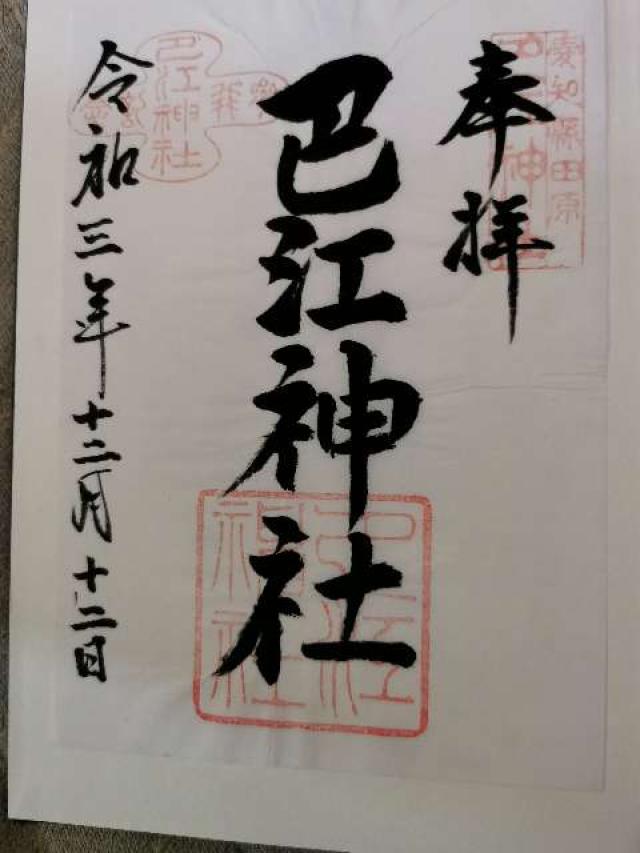 奉拝
愛知縣田原
巴江神社
巴江神社
巴江神社
令和三年十二月十二日